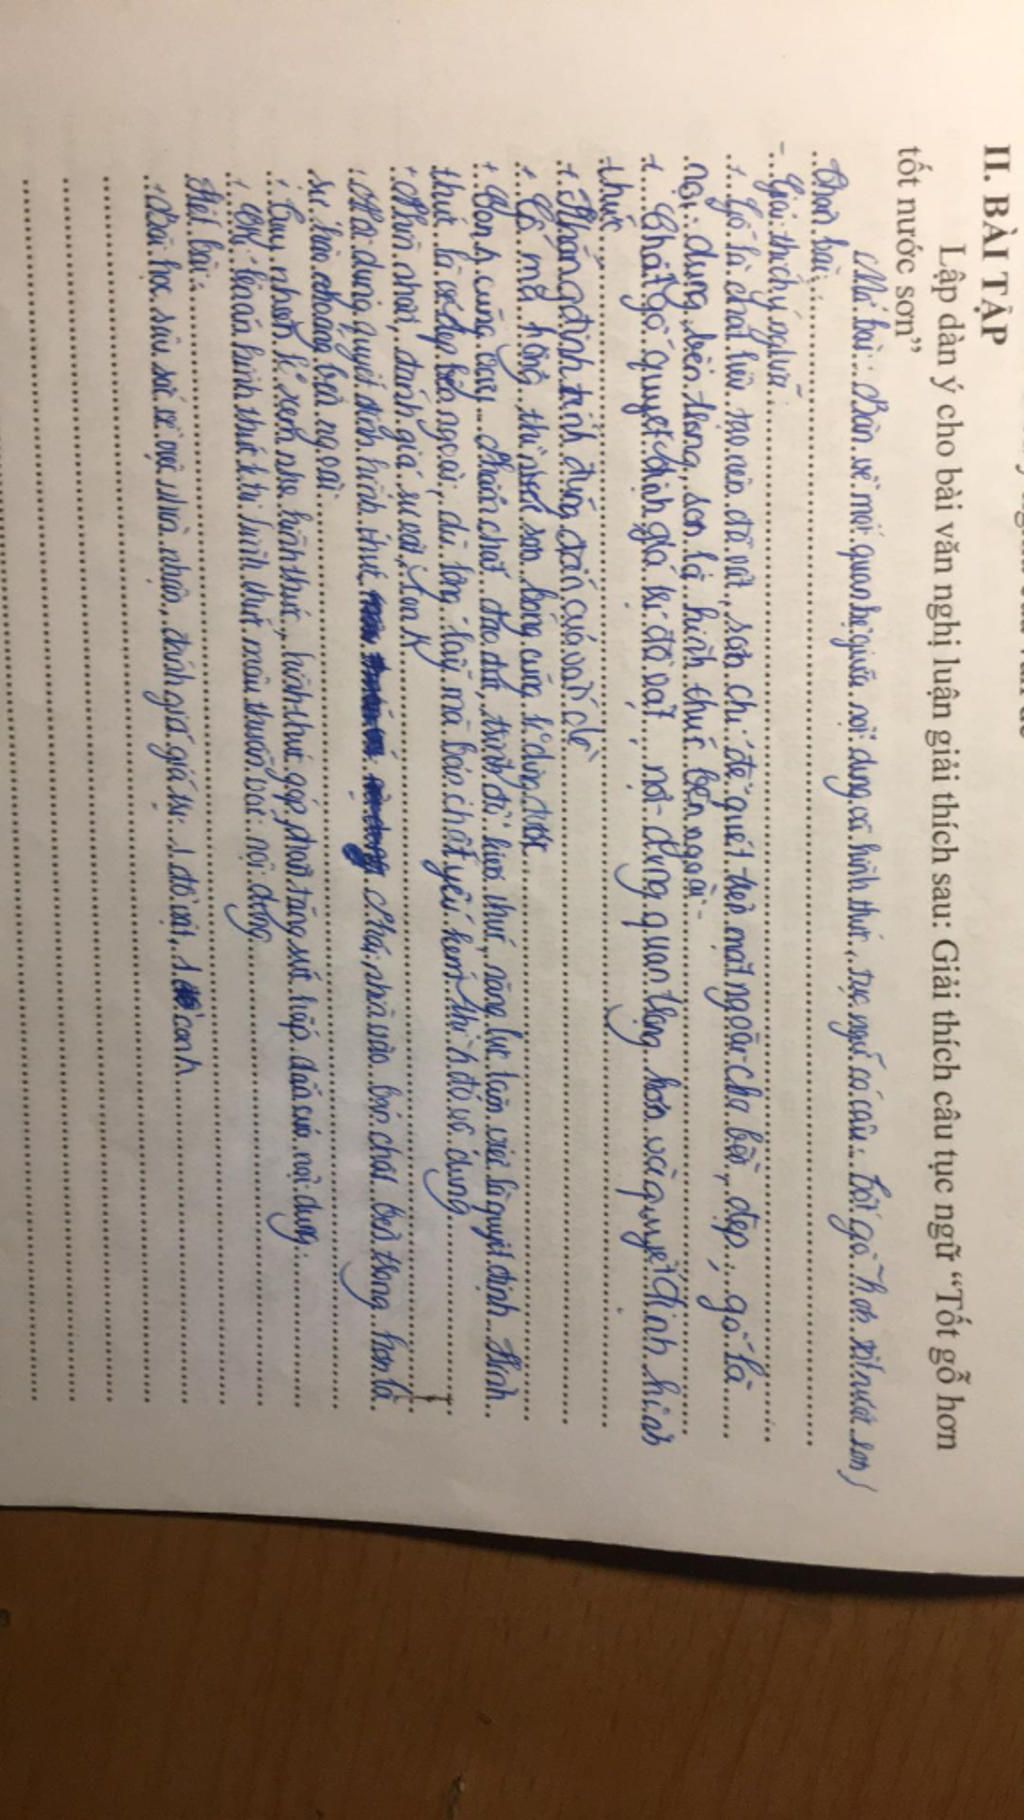 II. BÀI TẬP
Lập dàn ý cho bài văn nghị luận giải thích sau: Giải thích câu tục ngữ “Tốt gỗ hơn
tốt nước sơn”
Mở bài: Bàn về mối quan hệ giữa nội dung và hình thức, tục ngữ có câu: Tốt gỗ hơn tốt nước sơn
Thân bài:
- Giải thích ý nghĩa:
+ Gỗ là chất liệu tạo nên đồ vật, sơn chỉ để quét trên mặt ngoài cho bền, đẹp, gỗ là
nội dung bên trong, sơn là hình thức bên ngoài
+ Chất gỗ quyết định giá trị đồ vật, nội dung quan trọng hơn và quyết định hình
thức
+ Khẳng định tính đúng đắn của vấn đề
+ Gỗ mà hỏng thì nước sơn bóng cũng k dùng được
+ Con ng cũng vậy phẩm chất đạo đức, trình độ kiến thức, năng lực làm việc là quyết định hình
thức là vẻ đẹp bên ngoài, dù lộng lẫy mà bản chất yếu kém thì đó vô dụng
+ Nhìn nhận, đánh giá sự vật, con ng
+ Nội dung quyết định hình thức, phải nhìn vào bản chất bên trong hơn là
sự hào nhoáng bên ngoài
+ Tuy nhiên k xem nhẹ hình thức, hình thức góp phần tăng sức hấp dẫn của nội dung
+ hình thức khi hình thức mâu thuẫn với nội dung
Kết bài:
+ Bài học sâu sắc về việc nhìn nhận, đánh giá giá trị 1 đồ vật, 1 con ng